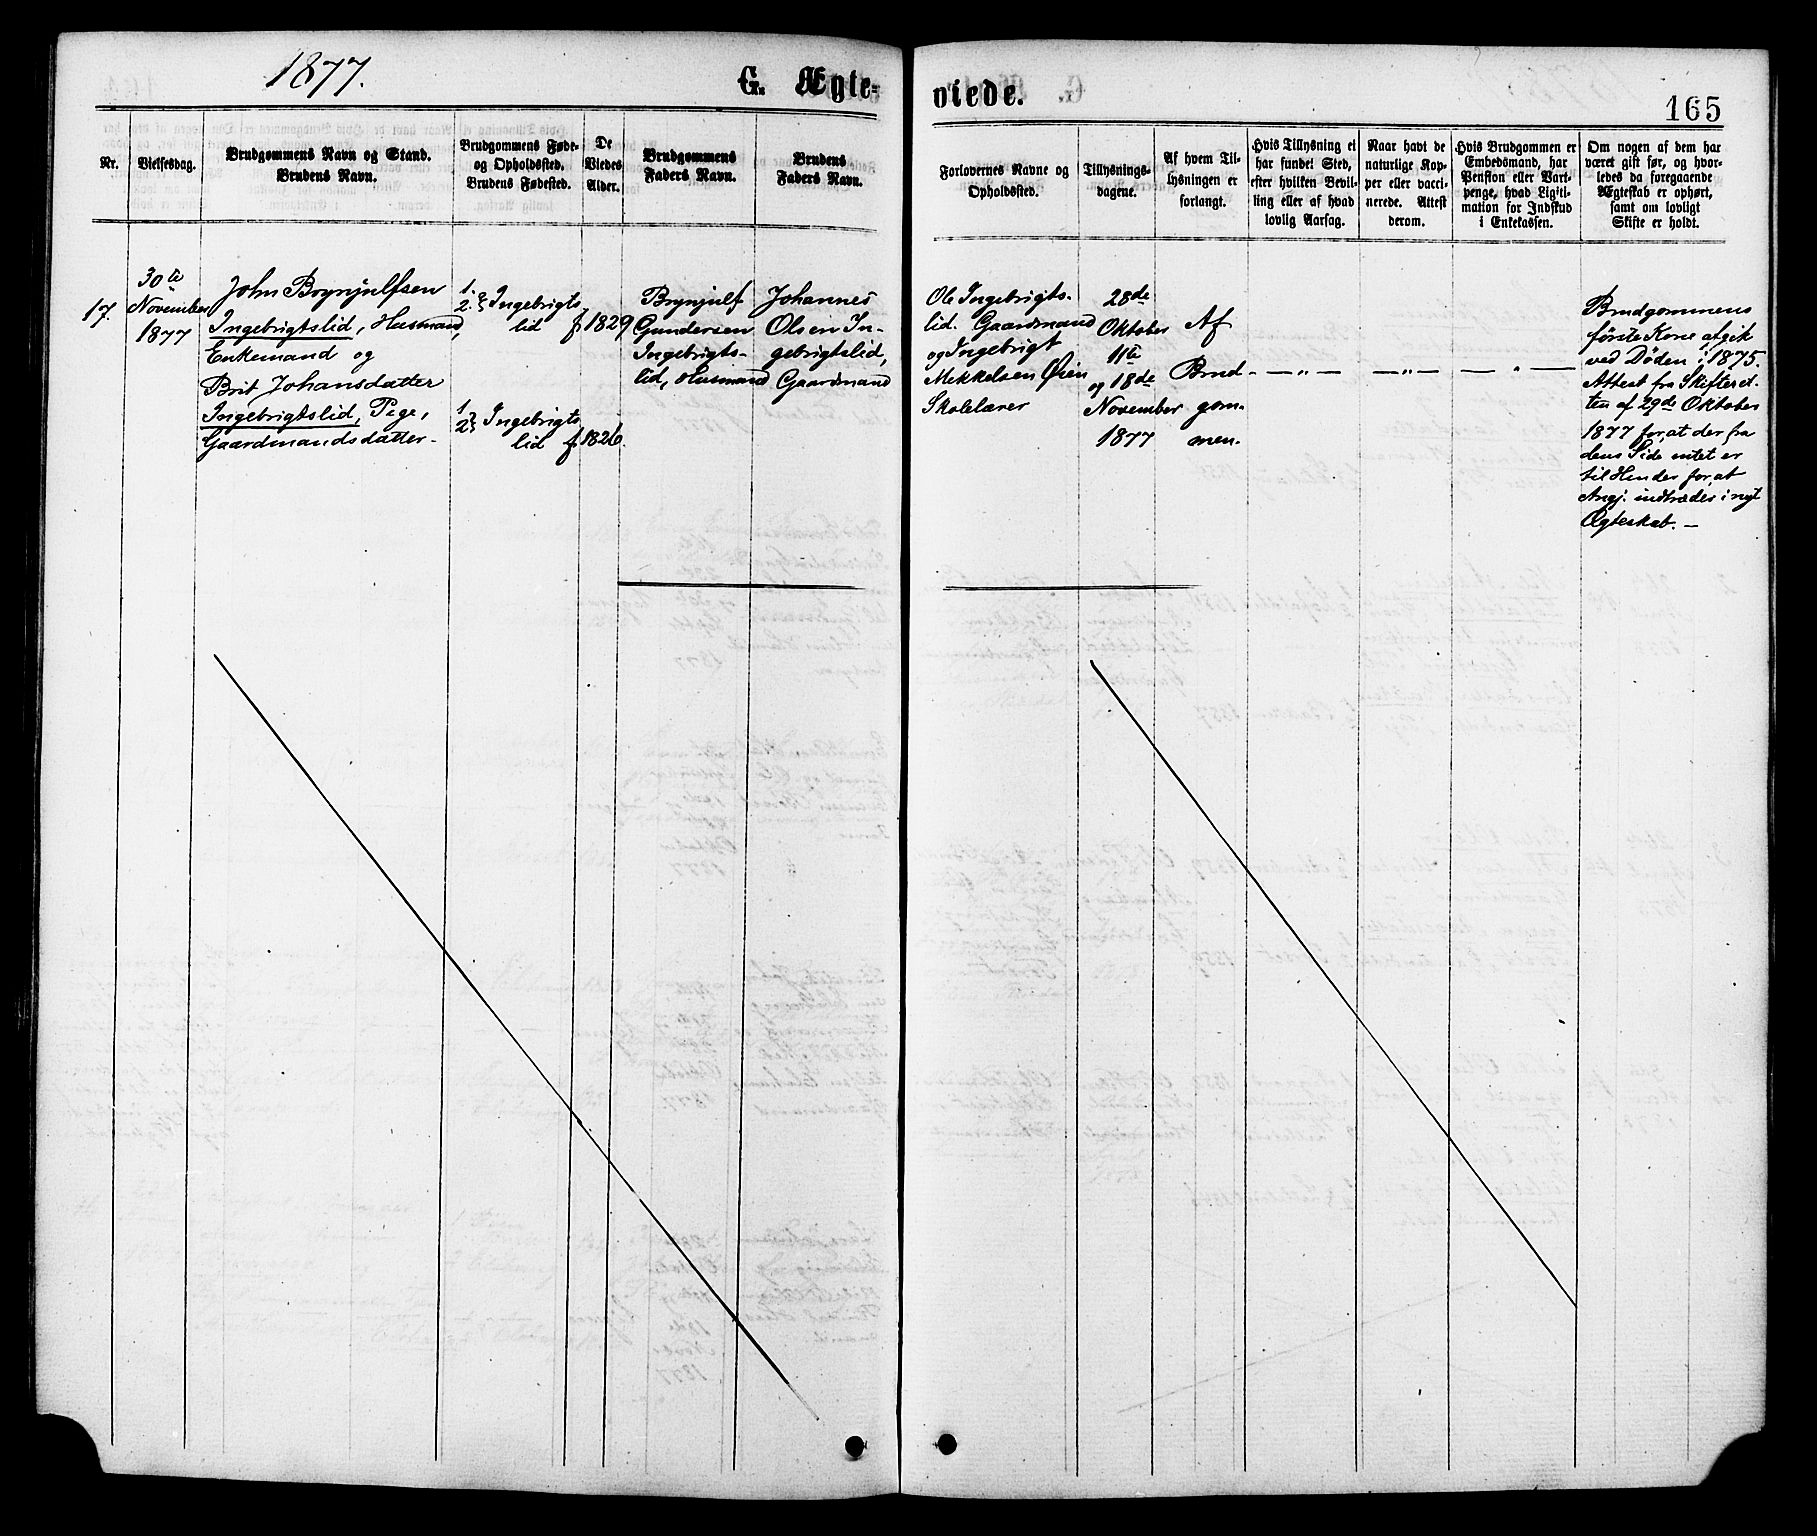 1877.
G. Ægte-
viede.
165
Nr.
Vielsesdag.
Brudgommens Navn og Stand.
Brudens Navn.
Brudgommens Føde-
og Opholdssted.
Brudens Fødested.
De
Viedes
Alder.
Brudgommens
Faders Navn.
Brudens
Faders Navn.
Forlovernes Navne og
Opholdssted.
Tillysnings-
dagene.
Af hvem Til-
lysningen er
forlangt.
Hvis Tillysning ei
har fundet Sted,
efter hvilken Bevil-
ling eller af hvad
lovlig Aarsag.
Naar havt de
naturlige Kop-
per eller vacci-
nerede. Attest
derom.
Hvis Brudgommen er
Embedsmand, har
Pension eller Vart-
penge, hvad Ligiti-
mation for Indskud
i Enkekassen.
Om nogen af dem har
været gift før, og hvor-
ledes da foregaaende
Ægteskab er ophørt,
samt om lovligt
Skifte er holdt.
17.
30te
November
1877
John Brynjulfsen
Ingebrigtslid, Husmand,
Enkemand og
Brit Johansdatter
Ingebrigtslid, Pige,
Gaardmandsdatter-
1.
2. } Ingebrigts
lid
f 1829
1.
2 } Ingebrigts
lid
f 1826.
Brynjulf
Gundersen
Ingebrigts-
lid, Husmand
Johannes
Olsen In-
gebrigtslid,
Gaardmand
Ole Ingebrigts-
lid. Gaardmand
og Ingebrigt
Mekkelsen Øien
Skolelærer
28de
Oktober
11te
og 18de
November
1877
Af
Brud-
gom-
men.
— " —
— " —
— " —
Brudgommens
første Kone afgik
ved Døden i 1875.
Attest fra Skifteret-
ten af 29de Oktober
1877 for, at der fra
dens Side intet er
til Hinder for, at
Angj. indtræder i nyt
Ægteskab. —